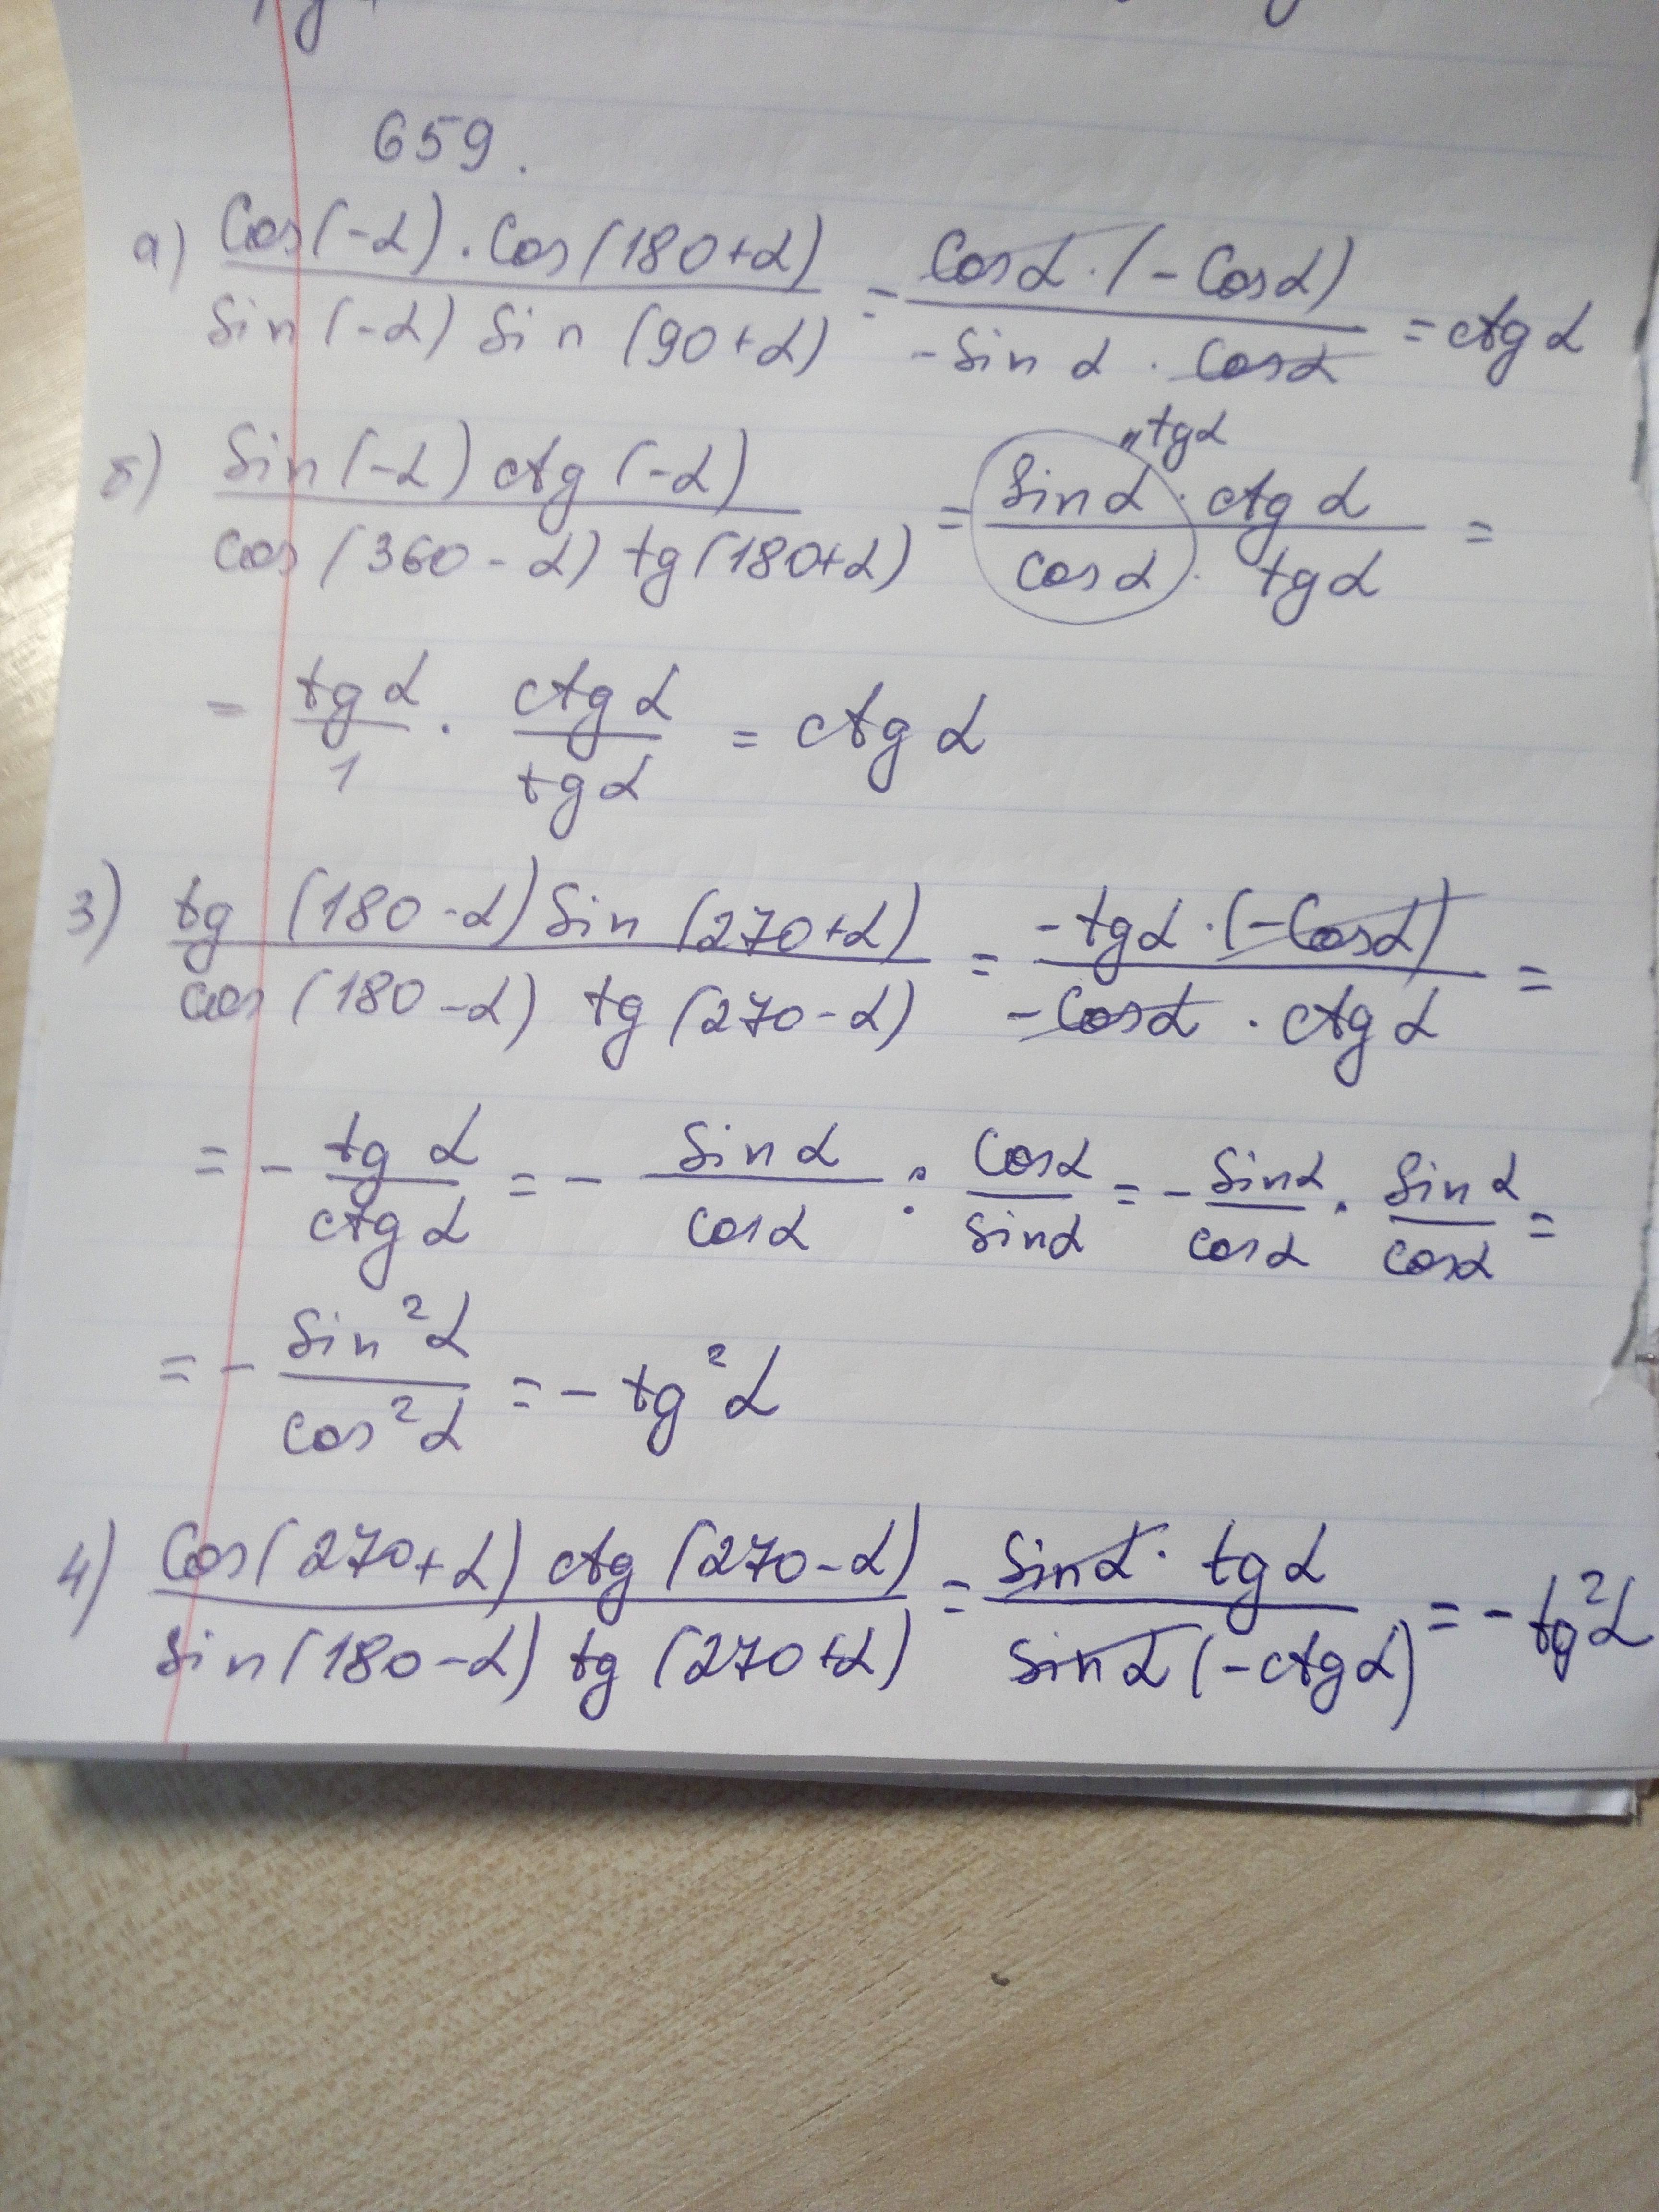 659.
а) cos(-α)·cos(180+α) / sin(-α) sin(90+α) = cosα·(-cosα) / -sinα·cosα = ctgα
"tgα
б) sin(-α) ctg(-α) / cos(360-α) tg(180+α) = sinα·ctgα / cosα·tgα =
= tgα / 1 · ctgα / tgα = ctgα
3) tg(180-α) sin(270+α) / cos(180-α) tg(270-α) = -tgα·(-cosα) / -cosα·ctgα =
= - tgα / ctgα = - sinα / cosα : cosα / sinα = - sinα / cosα · sinα / cosα =
= - sin²α / cos²α = - tg²α
4) cos(270+α) ctg(270-α) / sin(180-α) tg(270+α) = sinα·tgα / sinα(-ctgα) = - tg²α